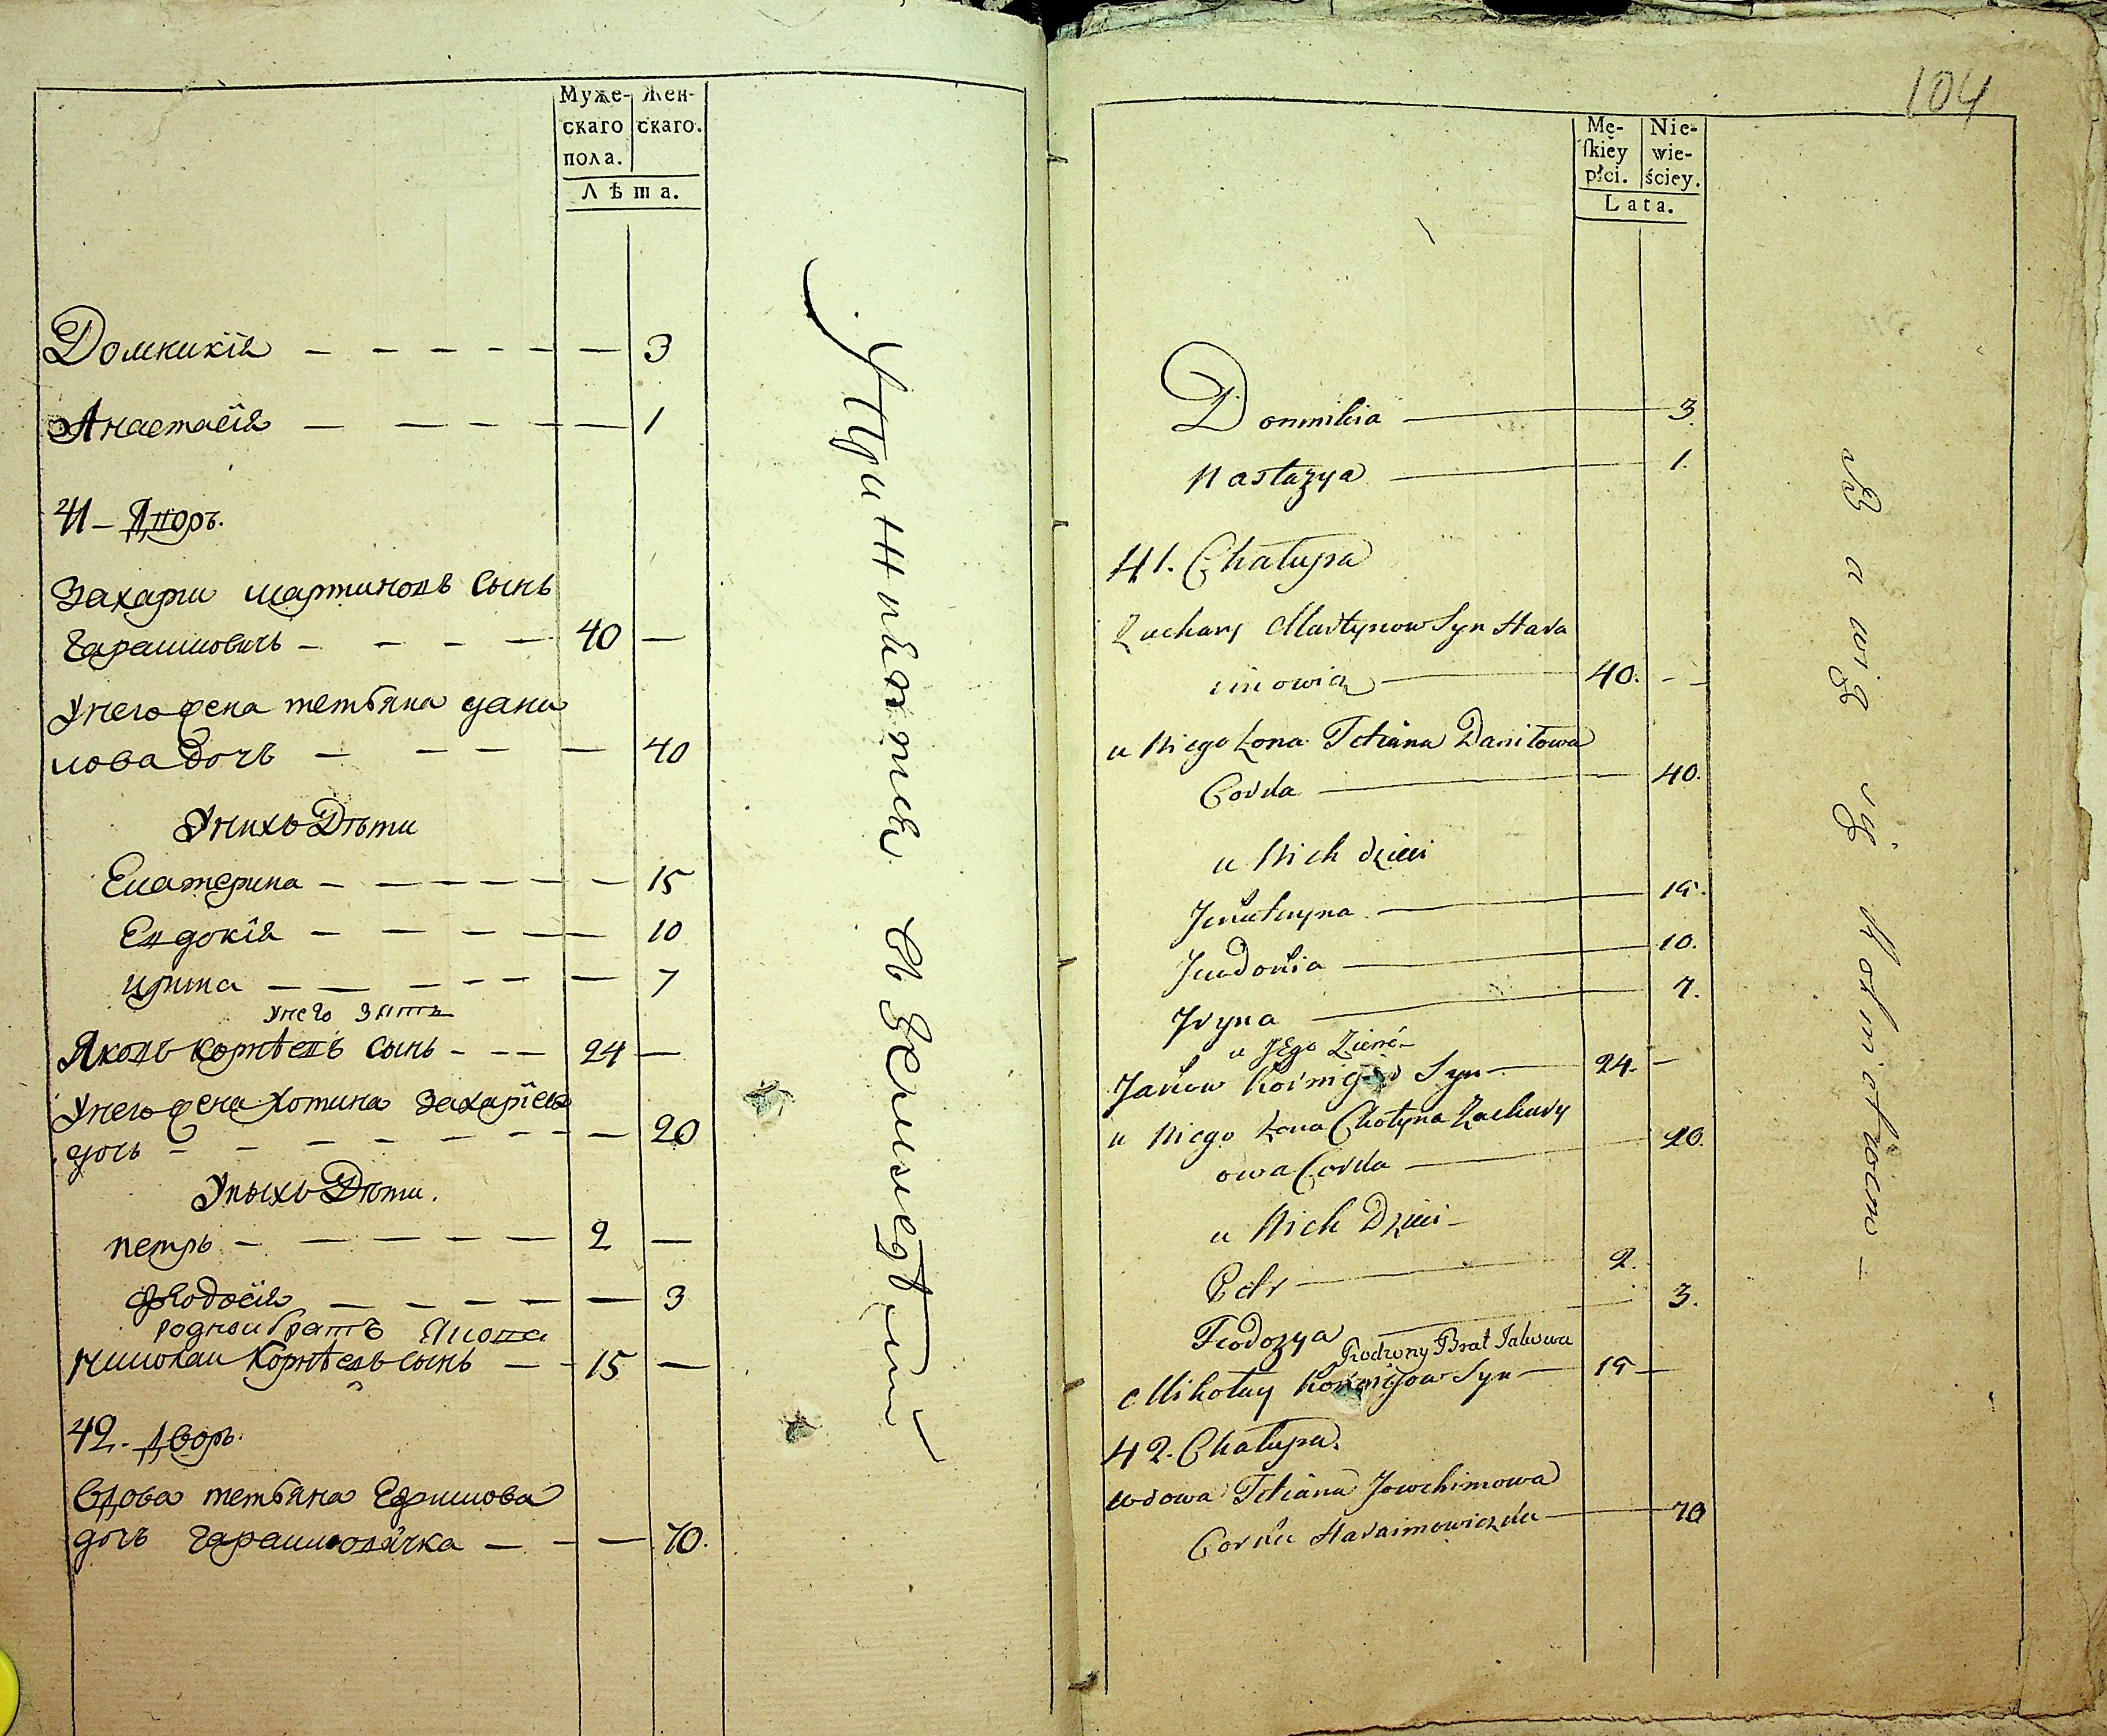 Муже-
скаго
пола.
Жен-
скаго.
Лѣта.
Домникія — 3
Анастасія — 1
41 – Дворъ.
Захари мартиновъ Сынъ
Гарашмовичъ — 40 —
Унего жена тетьяна дани
лова дочь — 40
Унихъ Дѣти
Екатерина — 15
Евдокія — 10
ирина — 7
унего зять
Яковъ Корнѣевъ сынъ — 24 —
Унего жена Хотина Захаріева
дочь — 20
Уныхъ Дѣти.
петръ — 2 —
Феодосія — 3
родный братъ Якова
Николаи Корнѣевъ сынъ — 15 —
42. Дворъ.
Вдова тетьяна Ефимова
дочь гарашмовичка — 70.
104
Mę-
skiey
płci.
Nie-
wie-
ściey.
Lata.
Domnikia — 3.
Nastazya — 1.
41. Chałupa
Zachary Martynow Syn Hara
imowicz — 40. –
u Niego Zona Tetiana Daniłowa
Corka — 40.
u Nich dzieci
Jekateryna — 15.
Jewdokia — 10.
Iryna — 7.
u Jego Zienć
Jakow Korniejow Syn — 24. –
u Niego Zona Chotyna Zachary
owa Corka — 20.
u Nich Dzieci
Petr — 2.
Feodozya — 3.
Rodzony Brat Jakowa
Mikołay Korniejow Syn — 15 –
42. Chałupa.
wdowa Tetiana Jowchimowa
Corka Haraimowiczka — 70